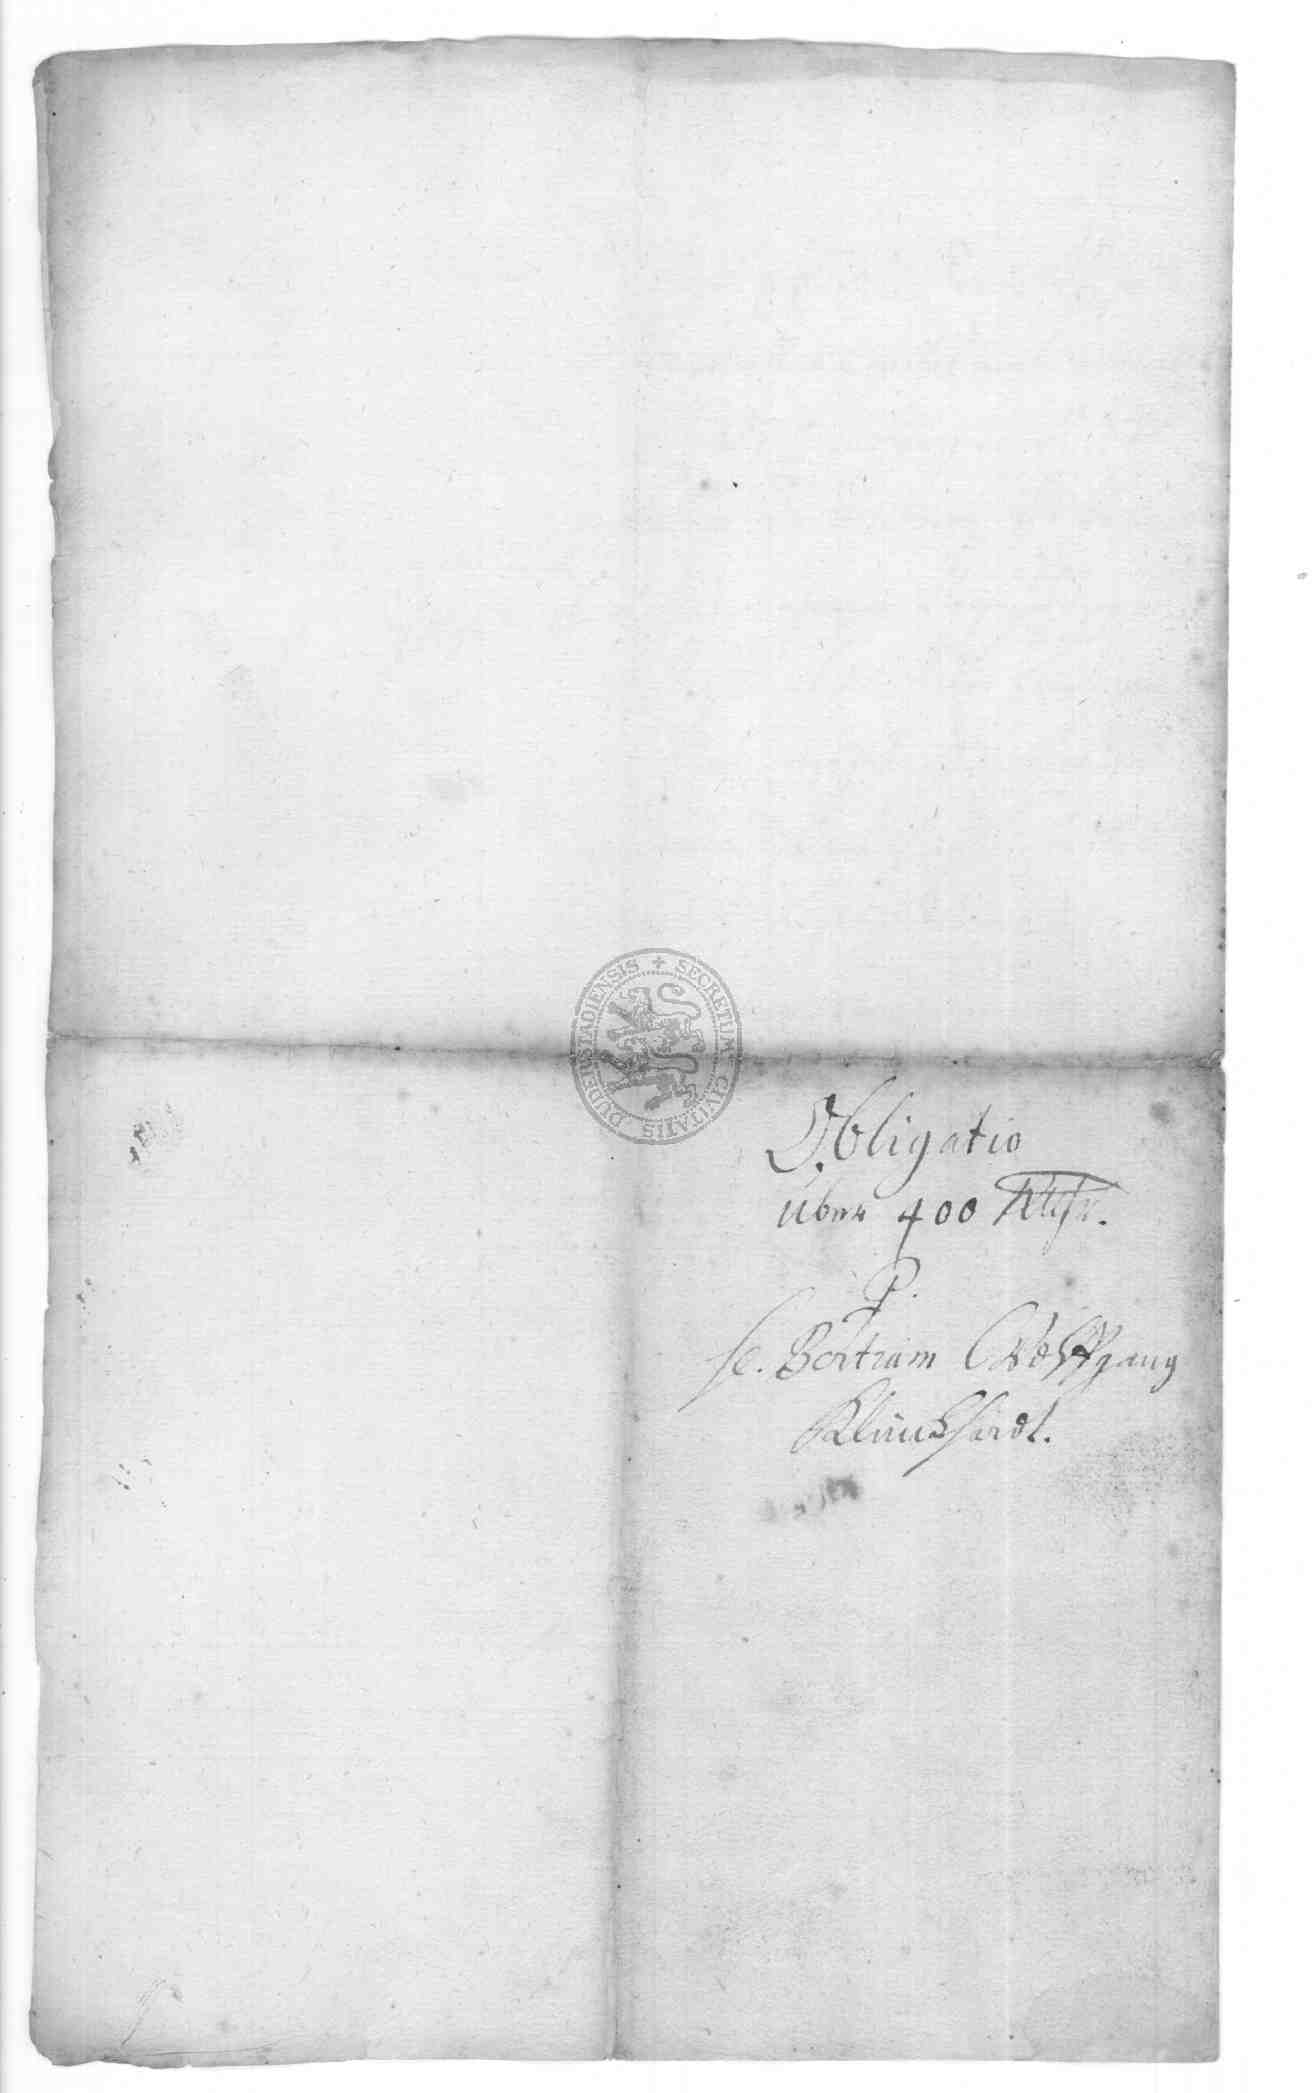 SECRETUM CIVITATIS DUDERSTADIENSIS
Obligatio
über 400 Rthlr.
P.
H. Bertram Wolffgang
Klinckhardt.